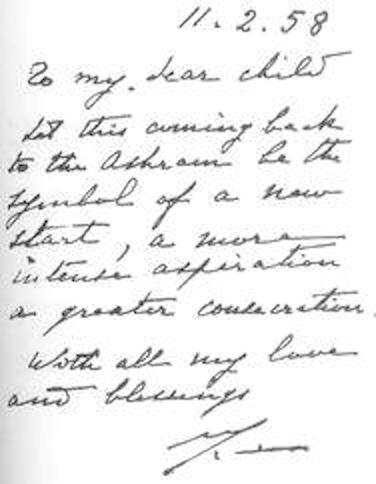 11.2.58
To my dear child
Let this coming back
to the Ashram be the
symbol of a new
start, a more
intense aspiration
a greater consecration.
With all my love
and blessings